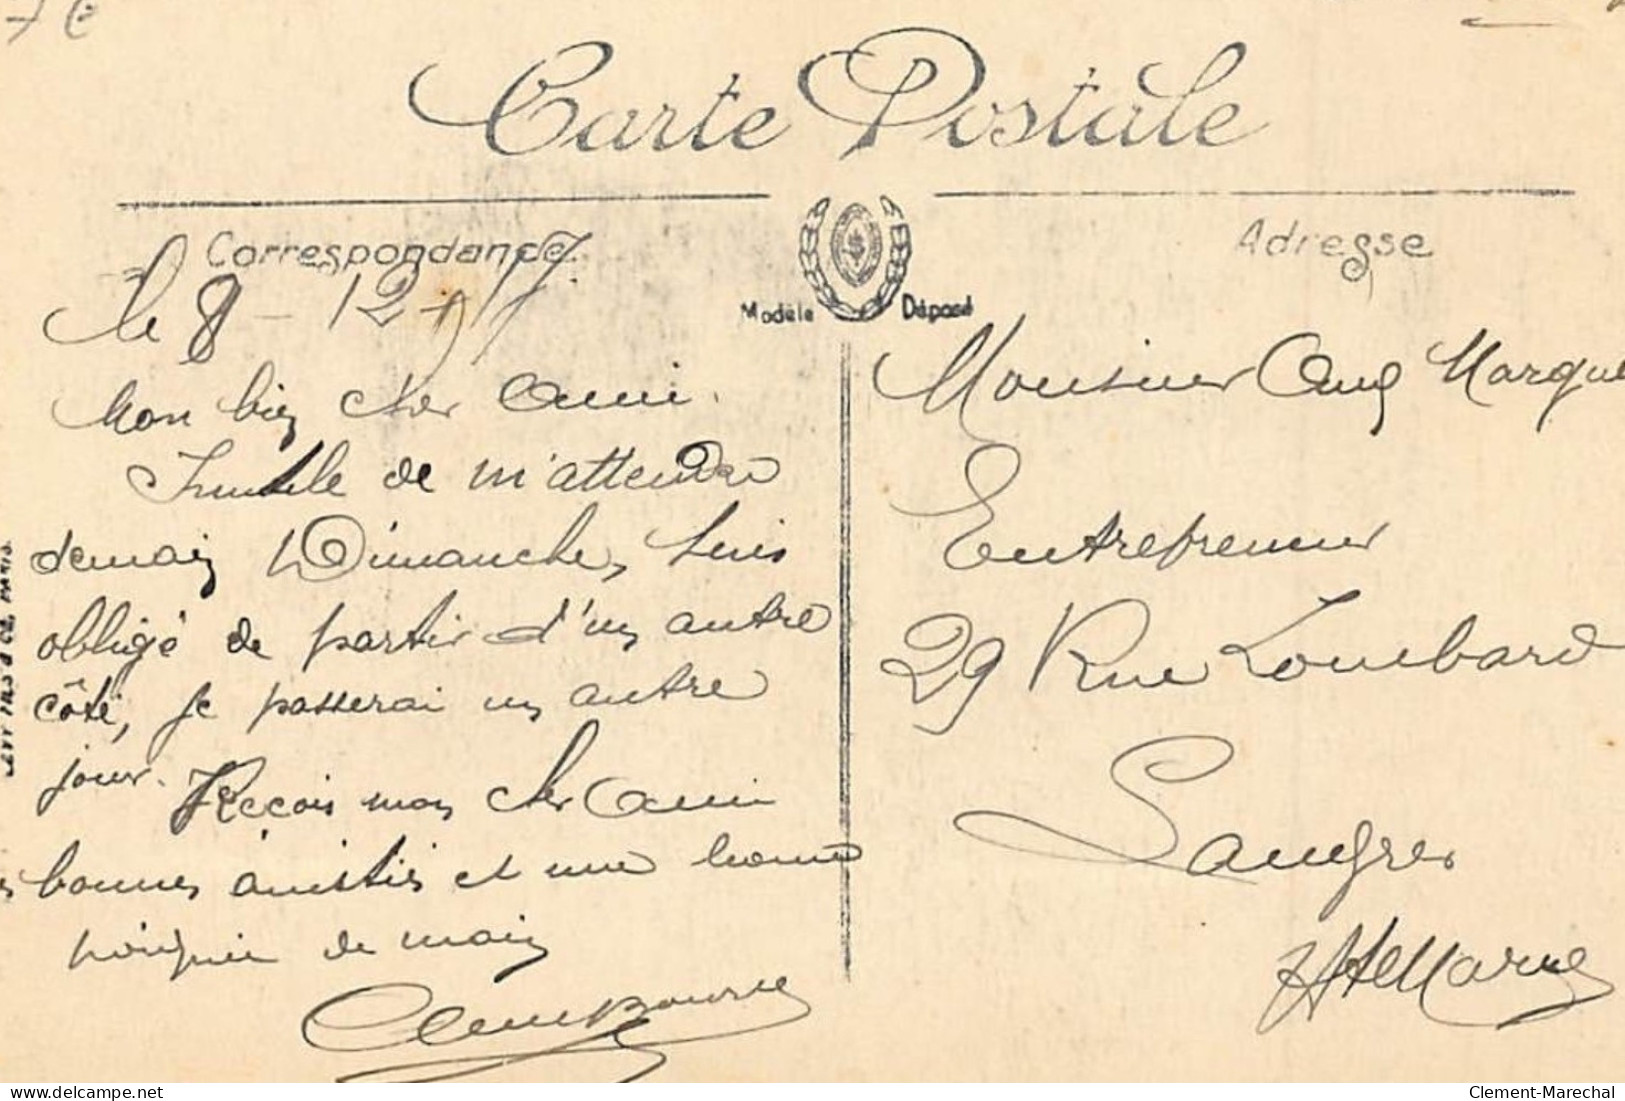 Carte Postale
Correspondance
Adresse
Modèle Déposé
le 8 - 12 - 17.
Mon bien cher Ami.
Inutile de m'attendre
demain Dimanche, suis
obligé de partir d'un autre
côté, je passerai un autre
jour. Reçois mon cher Ami
bonnes amitiés et une bonne
poignée de main
Monsieur Aug Marque
Entrepreneur
29 Rue Lombard
Langres
Hte Marne
LEVY FILS & Cie, PARIS.
delcampe.net
Clement-Marechal